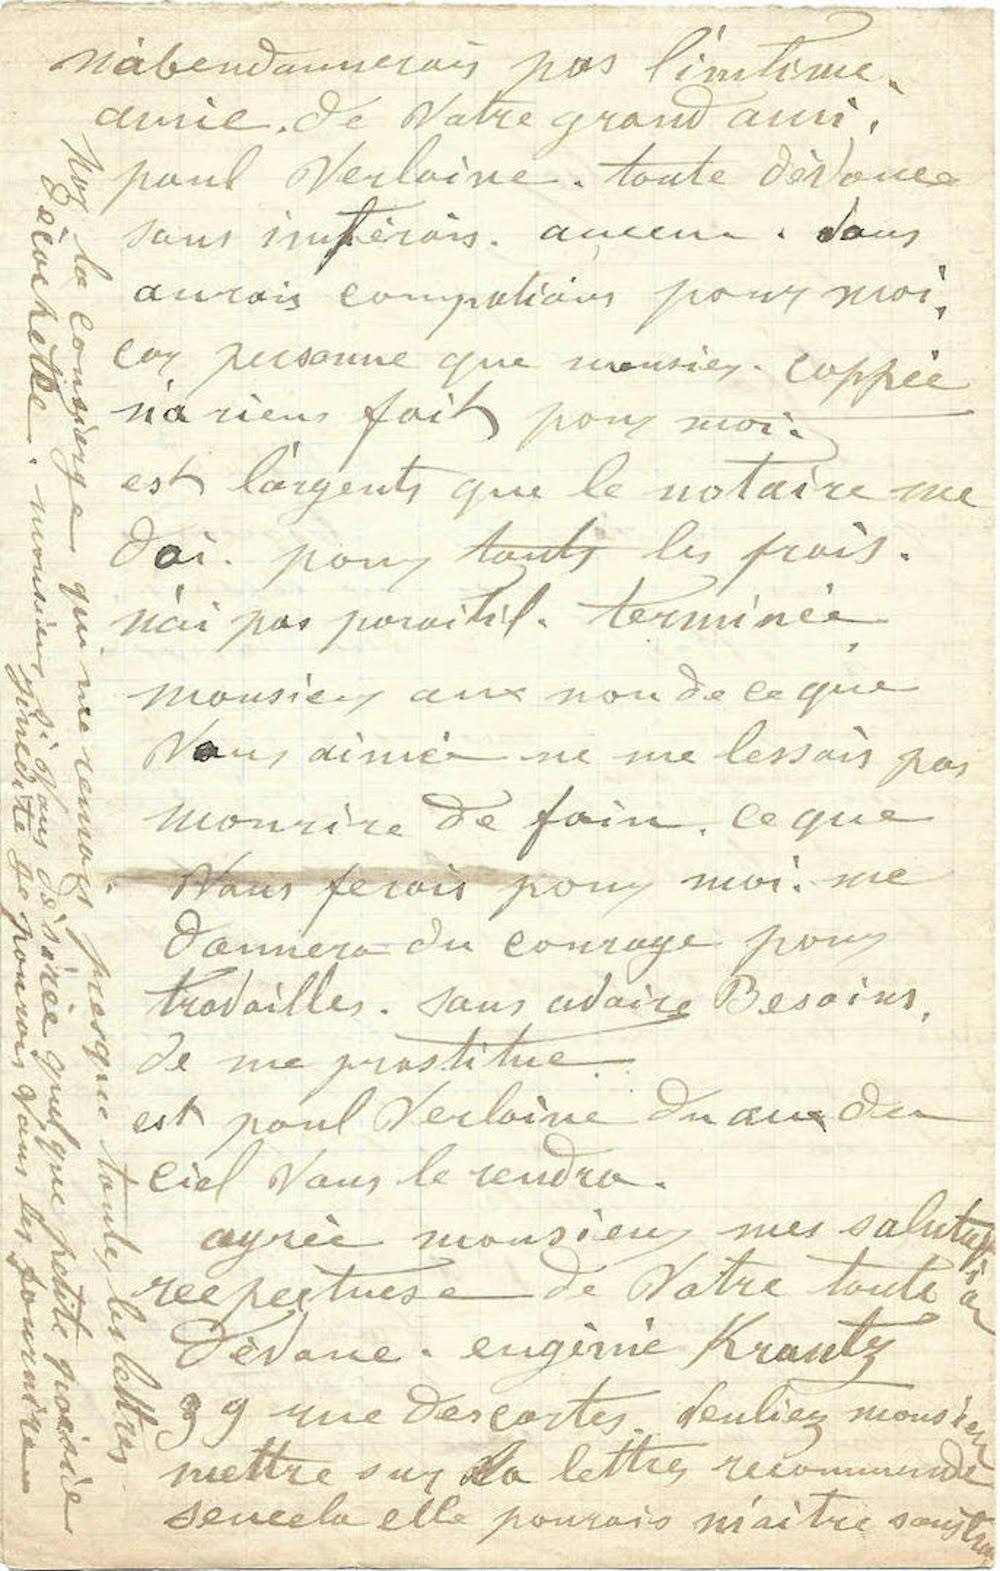 n'abendannerais pas l'intime.
amie. de Vatre grand ami.
paul Verlaine. toute dèvouee
sans intèrais. aucune. Vous
aurais compatiáns pour moi,
car personne que monsieur. coppée
n'a riens fait pour moi.
est l'argents que le notaire me
doi. pour touts les frais.
n'ai pas paraitil. terminèe
monsieur aux non de ce que
Vous aimèe ne me lessais pas
mourire de fain. ce que
Vous ferais pour moi. me
dannera du courage pour
travailles. sans avaire Besoins,
de me prostitue
est paul Verlaine du aux du
ciel Vous le rendra.
agrèe monsieur mes salutation
recpectuese de Vatre toute
dèvoue. eugènie Krantz
39 rue descartes. Veuliez monsieur
mettre sur la lettres recommende
sencela elle pourais m'aitre soustra
la consierge qui me remais presque toutes les lettres
dècachettèe. monsieur si Vous dèsirèe quelque petite poèsie
ginedite je pourrais Vous les fournire